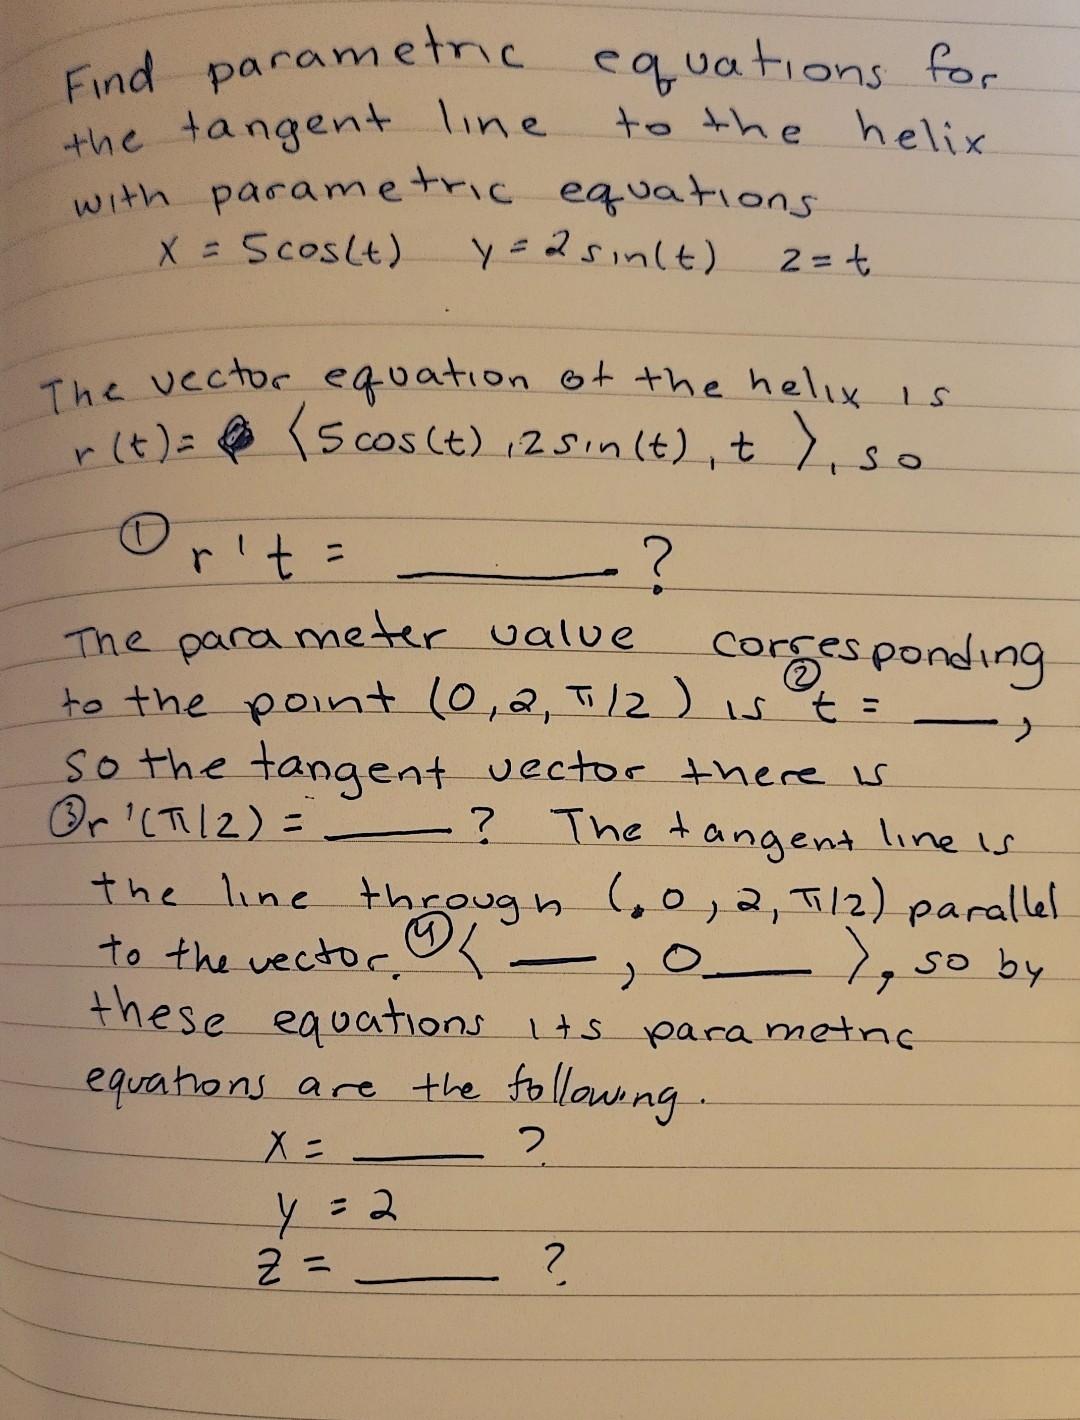 Find parametric equations for
the tangent line to the helix
with parametric equations
x = 5cos(t) y = 2sin(t) z = t
The vector equation of the helix is
r(t) = ⟨5cos(t), 2sin(t), t⟩, so
① r't = ______ ?
The parameter value corresponding
to the point (0, 2, π/2) is ② t = ___,
so the tangent vector there is
③ r'(π/2) = _____ ? The tangent line is
the line through (0, 2, π/2) parallel
to the vector. ④ ⟨ ___, 0 ___ ⟩, so by
these equations its parametric
equations are the following.
x = _____ ?
y = 2
z = _____ ?